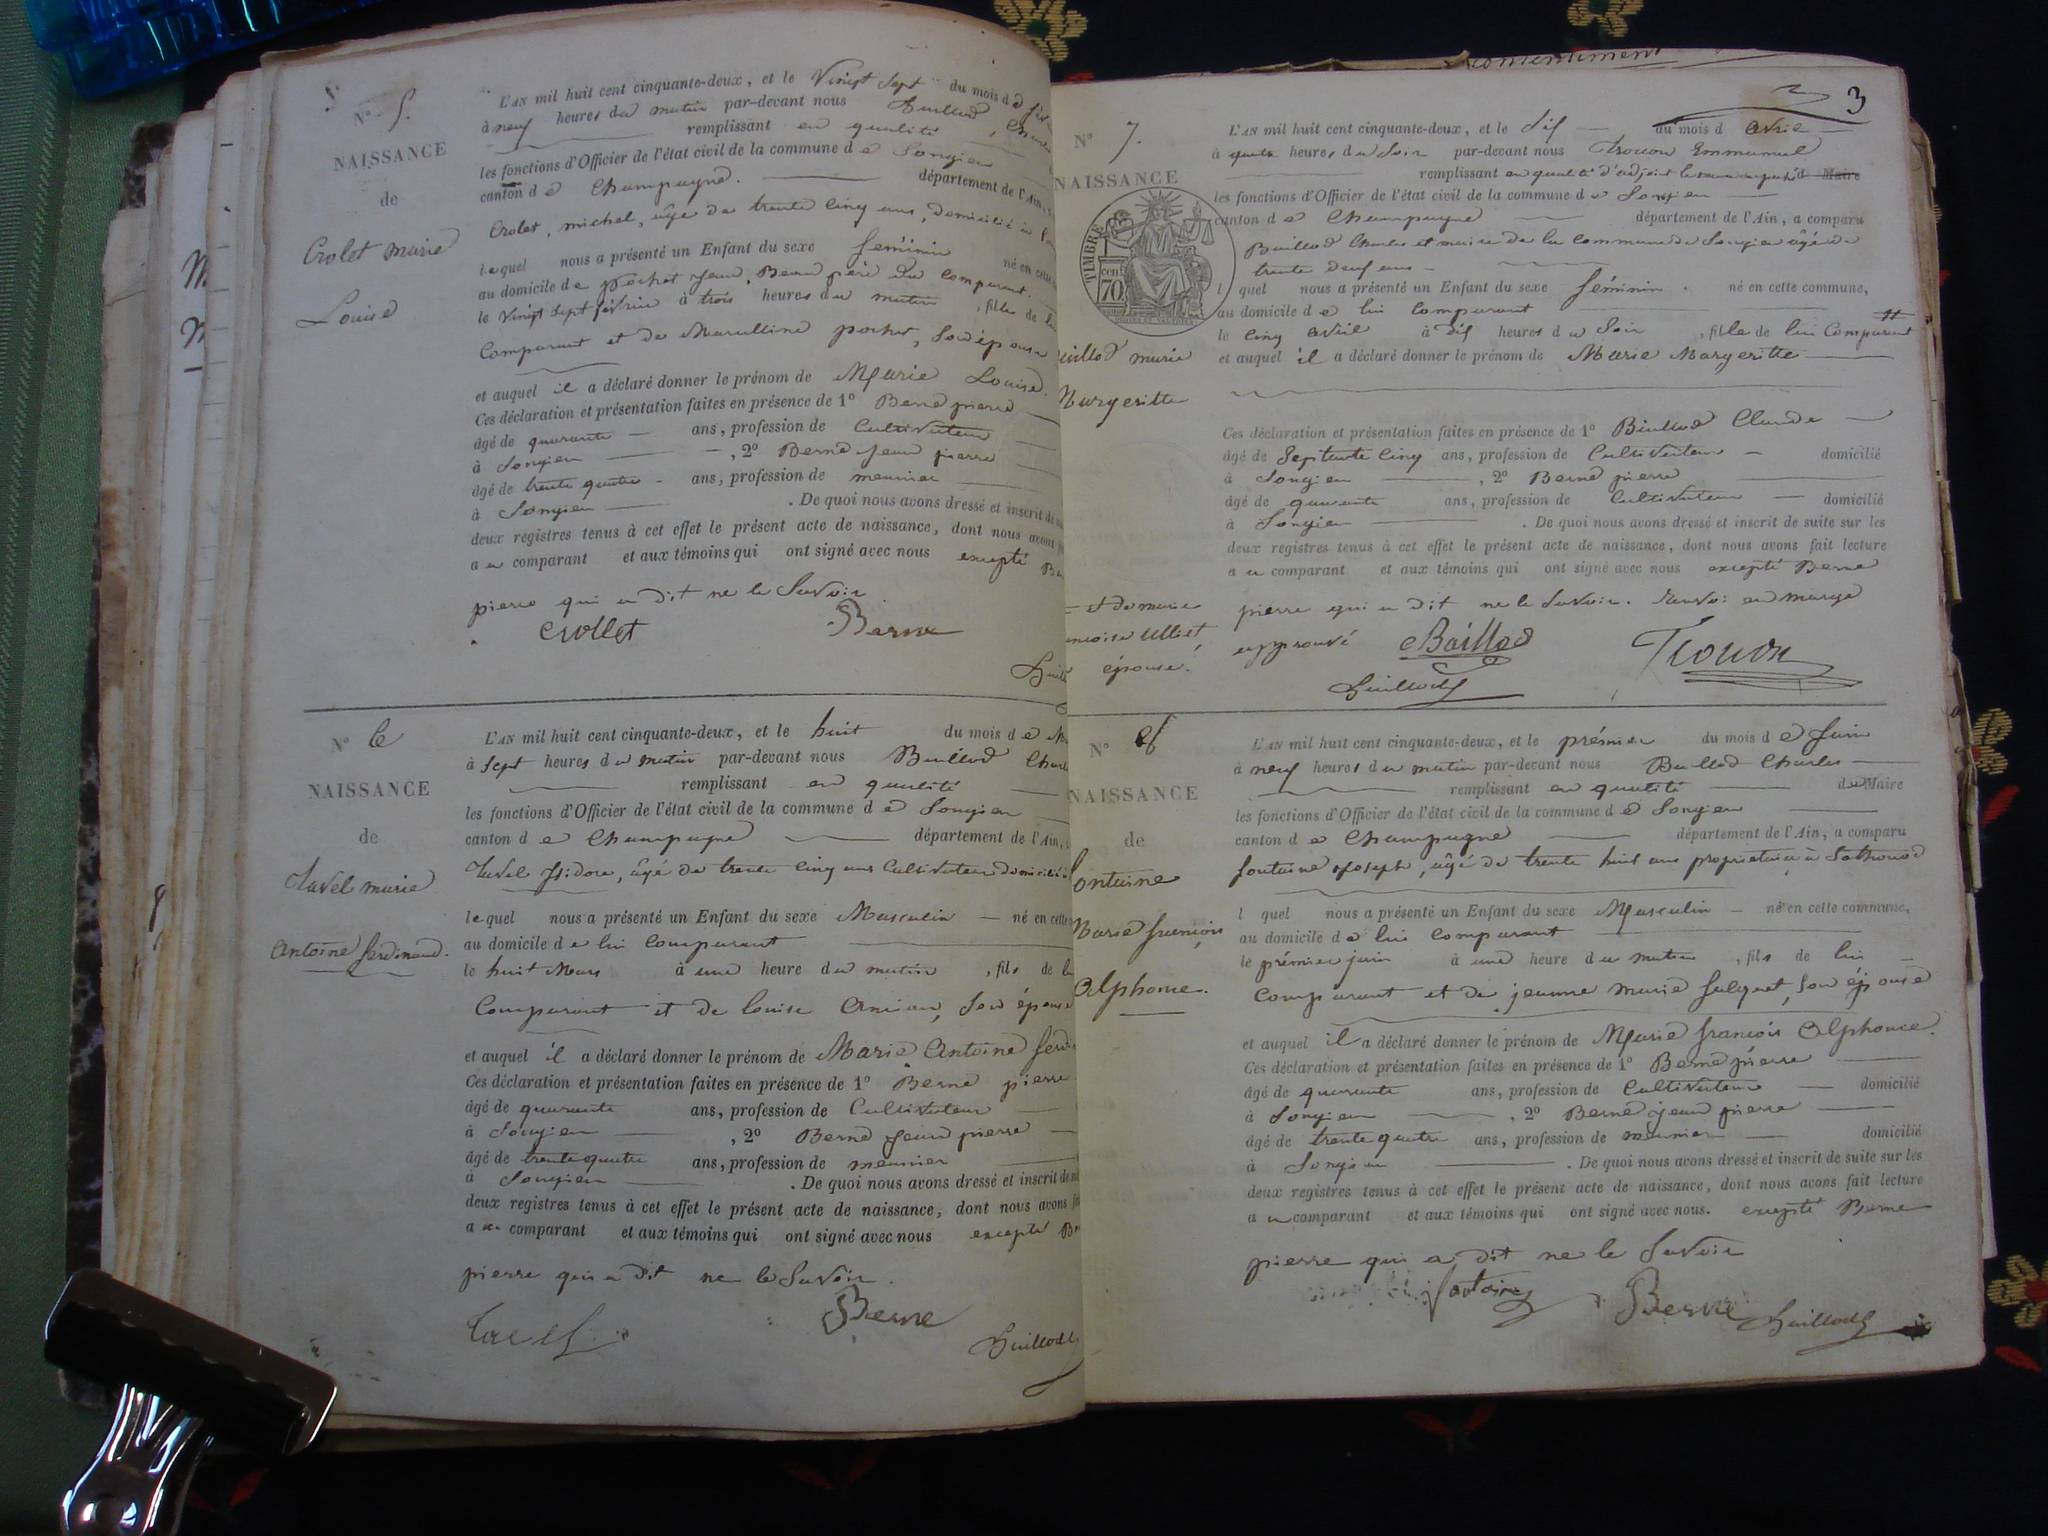 N° 5.
NAISSANCE
de
Crolet marie
Louise
L'AN mil huit cent cinquante-deux, et le Vingt Sept du mois de
à neuf heures du matin par-devant nous
remplissant en qualité
les fonctions d'Officier de l'état civil de la commune de Songieu
canton de Champagne. département de l'Ain,
Crolet, michel, âgé de trente cinq ans, domicilié à
lequel nous a présenté un Enfant du sexe féminin né en cette
au domicile de pochet jean, Beau père du comparant.
le Vingt sept février à trois heures du matin, fille de lui
Comparant et de Marulline pochet, Son épouse
et auquel il a déclaré donner le prénom de Marie Louise.
Ces déclaration et présentation faites en présence de 1° Berne pierre
âgé de quarante ans, profession de Cultivateur
à Songieu, 2° Berne jean pierre
âgé de trente quatre ans, profession de meunier
à Songieu. De quoi nous avons dressé et inscrit de
deux registres tenus à cet effet le présent acte de naissance, dont nous avons
au comparant et aux témoins qui ont signé avec nous excepté
pierre qui a dit ne le Savoir
Crollet Berne
N° 6
NAISSANCE
de
tavel marie
antoine ferdinand.
L'AN mil huit cent cinquante-deux, et le huit du mois de
à Sept heures du matin par-devant nous Baillod
remplissant en qualité
les fonctions d'Officier de l'état civil de la commune de Songieu
canton de Champagne département de l'Ain,
tavel Isidore, âgé de trente cinq ans Cultivateur domicilié à
lequel nous a présenté un Enfant du sexe Masculin né en cette
au domicile de lui comparant
le huit Mars à une heure du matin, fils de
Comparant et de louise Anciau, Son épouse
et auquel il a déclaré donner le prénom de Marie Antoine
Ces déclaration et présentation faites en présence de 1° Berne pierre
âgé de quarante ans, profession de Cultivateur
à Songieu, 2° Berne jean pierre
âgé de trente quatre ans, profession de meunier
à Songieu. De quoi nous avons dressé et inscrit de
deux registres tenus à cet effet le présent acte de naissance, dont nous avons
au comparant et aux témoins qui ont signé avec nous excepté
pierre qui a dit ne le Savoir.
tavel Berne
Baillod
consentiment
3
N° 7.
NAISSANCE
TIMBRE
70 cen
marie
Margeritte
L'AN mil huit cent cinquante-deux, et le dix du mois d avril
à quatre heures du Soir par-devant nous Trouon Emmanuel
remplissant en qualité d'adjoint le maire empêché Maire
les fonctions d'Officier de l'état civil de la commune de Songieu
canton de Champagne département de l'Ain, a comparu
Baillod Charles et maire de la commune de Songieu âgé de
trente deux ans
l quel nous a présenté un Enfant du sexe féminin. né en cette commune,
au domicile de lui comparant
le cinq avril à dix heures du Soir, fille de lui Comparant
et auquel il a déclaré donner le prénom de Marie Margeritte
Ces déclaration et présentation faites en présence de 1° Baillod Claude
âgé de Septante Cinq ans, profession de Cultivateur domicilié
à Songieu, 2° Berne pierre
âgé de quarante ans, profession de Cultivateur domicilié
à Songieu. De quoi nous avons dressé et inscrit de suite sur les
deux registres tenus à cet effet le présent acte de naissance, dont nous avons fait lecture
au comparant et aux témoins qui ont signé avec nous excepté Berne
pierre qui a dit ne le Savoir. Renvoi en marge
approuvé Baillod Trouon
Baillod
et de marie
Ulliet
épouse.
N° 8
NAISSANCE
de
fontaine
Marie françois
Alphonse.
L'AN mil huit cent cinquante-deux, et le prémier du mois de Juin
à neuf heures du matin par-devant nous Baillod Charles
remplissant en qualité de Maire
les fonctions d'Officier de l'état civil de la commune de Songieu
canton de Champagne département de l'Ain, a comparu
fontaine joseph, âgé de trente huit ans propriétaire à Sothonod
l quel nous a présenté un Enfant du sexe Masculin né en cette commune,
au domicile de lui comparant
le prémier juin à une heure du matin, fils de lui
comparant et de jeanne marie fulquet, Son épouse
et auquel il a déclaré donner le prénom de Marie françois Alphonse.
Ces déclaration et présentation faites en présence de 1° Berne pierre
âgé de quarante ans, profession de Cultivateur domicilié
à Songieu, 2° Berne jean pierre
âgé de trente quatre ans, profession de meunier domicilié
à Songieu. De quoi nous avons dressé et inscrit de suite sur les
deux registres tenus à cet effet le présent acte de naissance, dont nous avons fait lecture
au comparant et aux témoins qui ont signé avec nous. excepté Berne
pierre qui a dit ne le Savoir
fontaine Berne Baillod